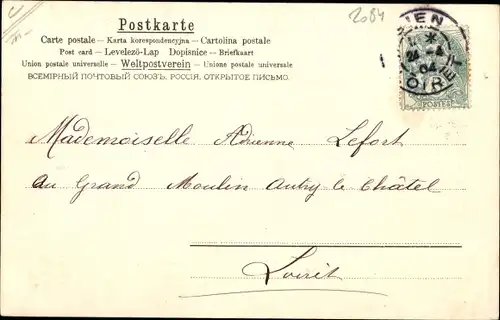 2084
Postkarte
Carte postale — Karta korespondencyjna — Cartolina postale
Post card — Levelező-Lap Dopisnice — Briefkaart
Union postale universelle — Weltpostverein — Unione postale universale
ВСЕМІРНЫЙ ПОЧТОВЫЙ СОЮЗЪ. РОССІЯ. ОТКРЫТОЕ ПИСЬМО.
IEN
04
POSTES
Mademoiselle Adrienne Lefort
au Grand Moulin Autry le Châtel
Loiret